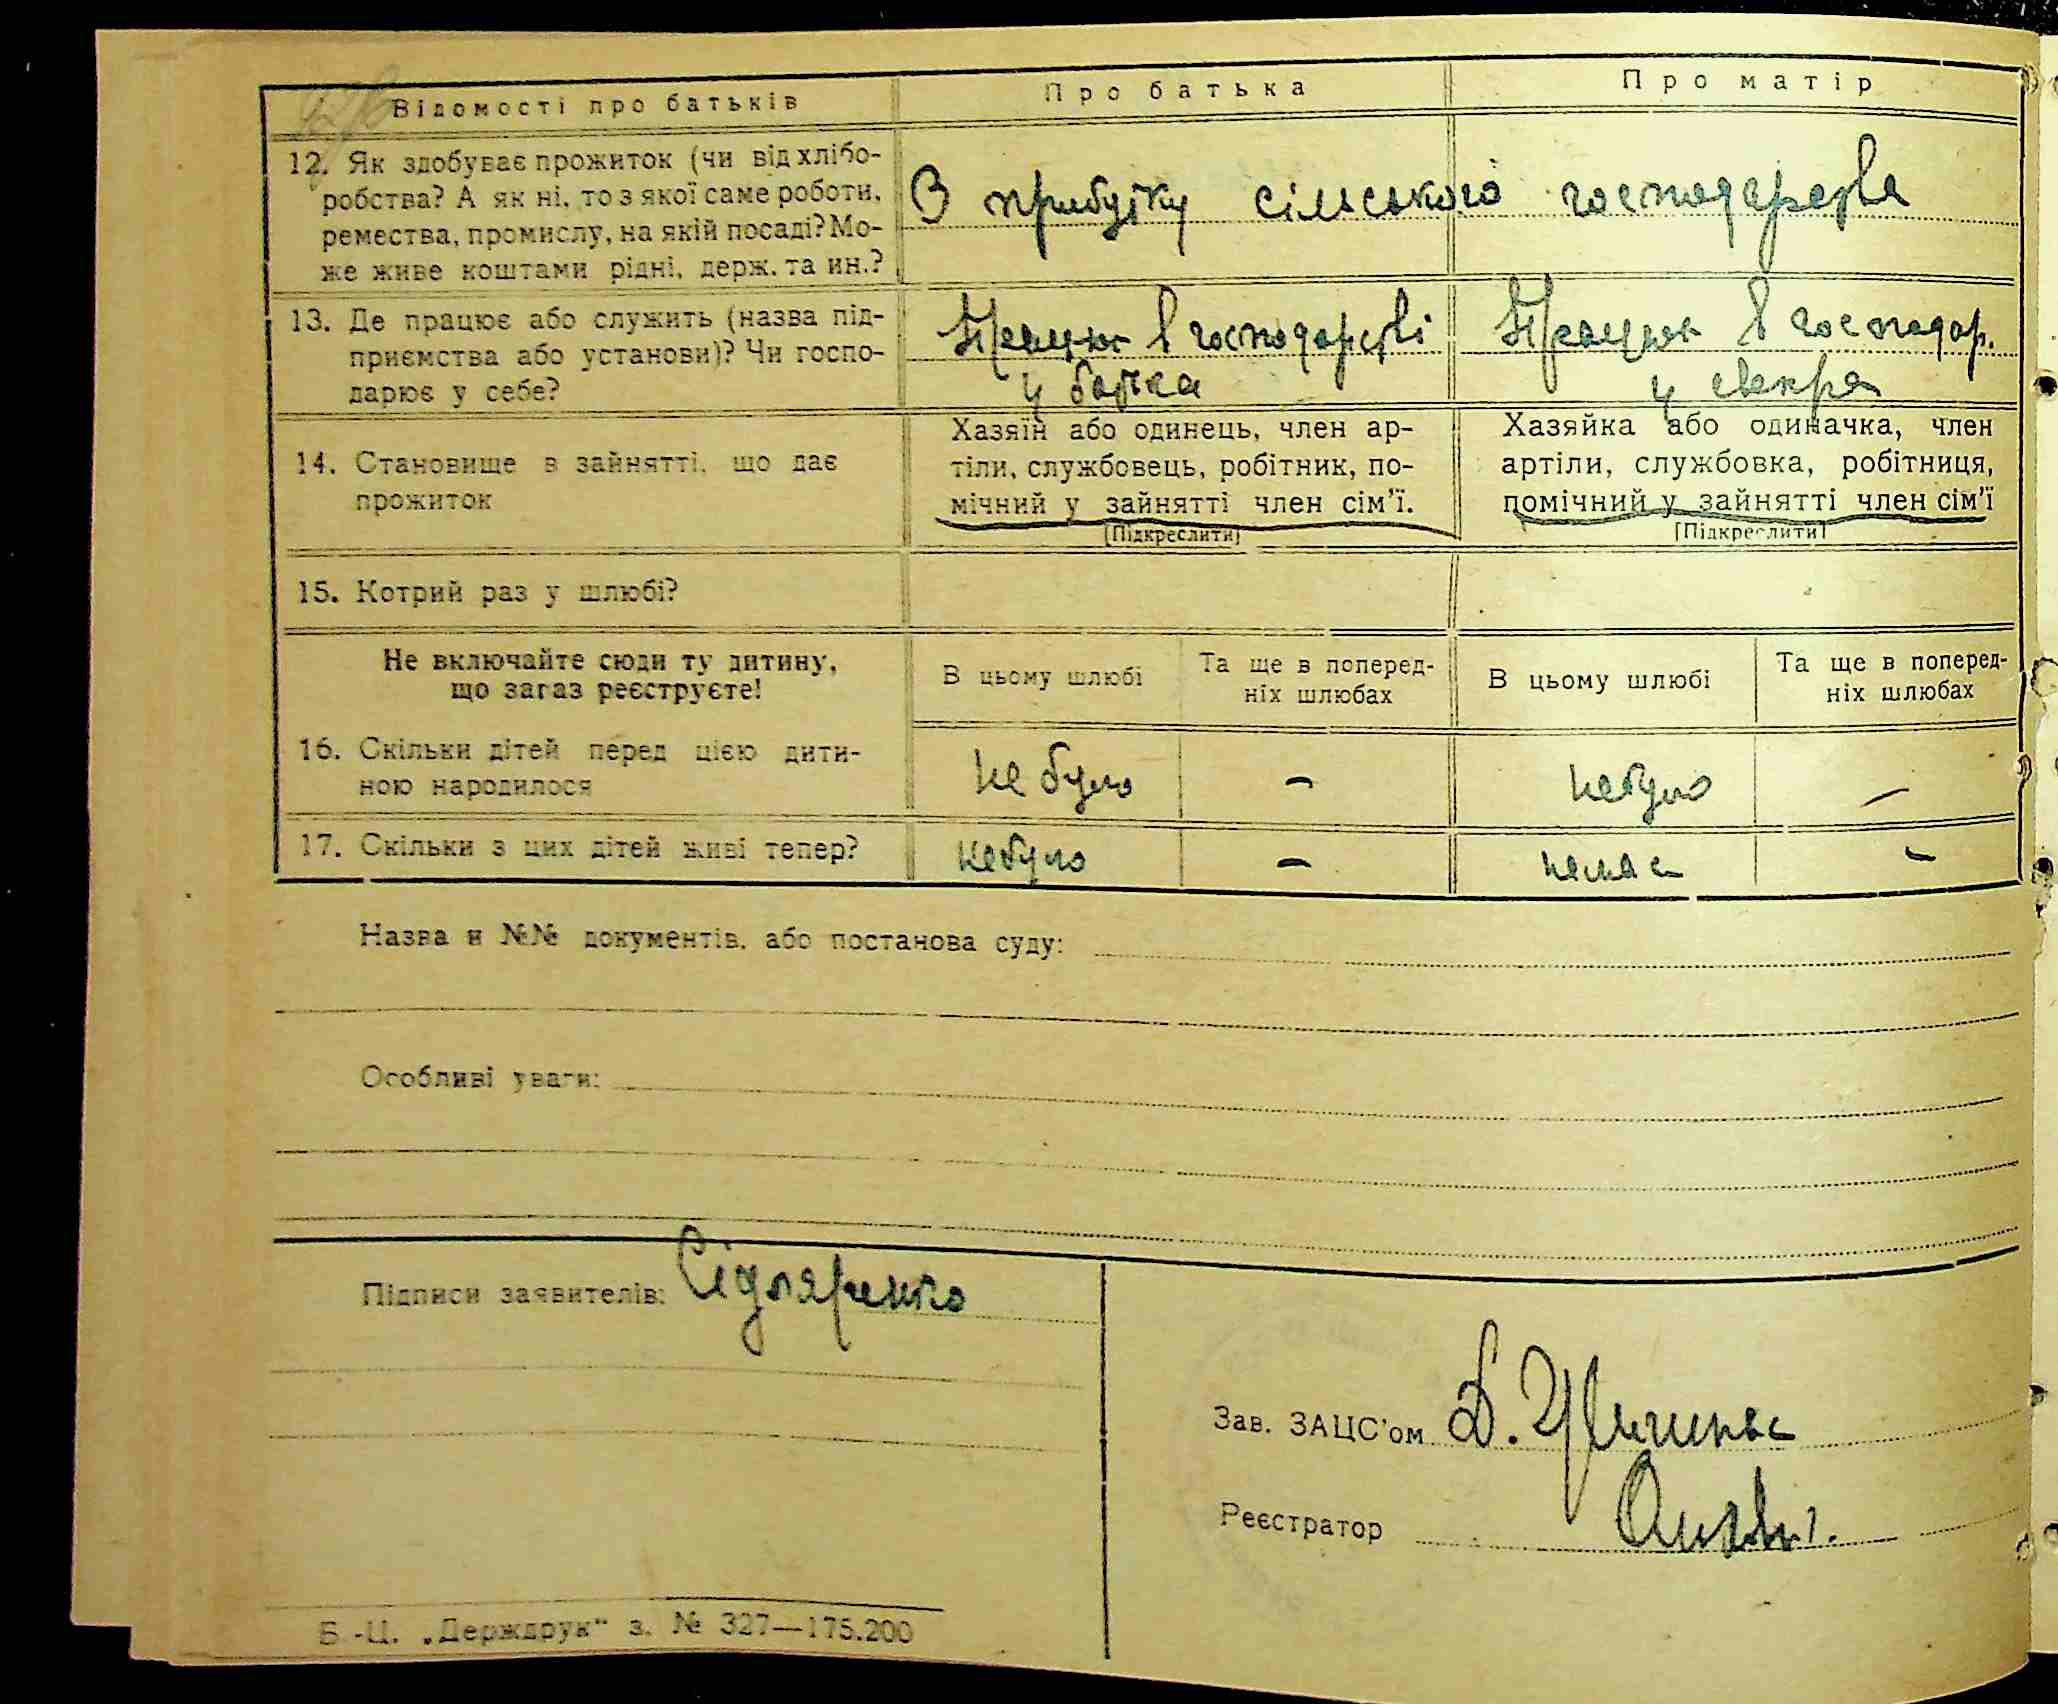 Відомості про батьків
Про батька
Про матір
12. Як здобуває прожиток (чи від хлібо-
робства? А як ні, то з якої саме роботи,
ремества, промислу, на якій посаді? Мо-
же живе коштами рідні, держ. та ин.?
З прибутку сільського господарства
13. Де працює або служить (назва під-
приємства або установи)? Чи госпо-
дарює у себе?
Працює в господарстві
у батька
Працює в господар.
у свекра
14. Становище в зайнятті, що дає
прожиток
Хазяїн або одинець, член ар-
тіли, службовець, робітник, по-
мічний у зайнятті член сім'ї.
[Підкреслити]
Хазяйка або одиначка, член
артіли, службовка, робітниця,
помічний у зайнятті член сім'ї
[Підкреслити]
15. Котрий раз у шлюбі?
Не включайте сюди ту дитину,
що зараз реєструєте!
В цьому шлюбі
Та ще в поперед-
ніх шлюбах
В цьому шлюбі
Та ще в поперед-
ніх шлюбах
16. Скільки дітей перед цією дити-
ною народилося
не було
–
не було
–
17. Скільки з цих дітей живі тепер?
не було
–
немає
–
Назва й №№ документів, або постанова суду:
Особливі уваги:
Підписи заявителів: Сідляренко
Зав. ЗАЦС'ом
Реєстратор
Б.-Ц. „Держдрук" з. № 327—175.200